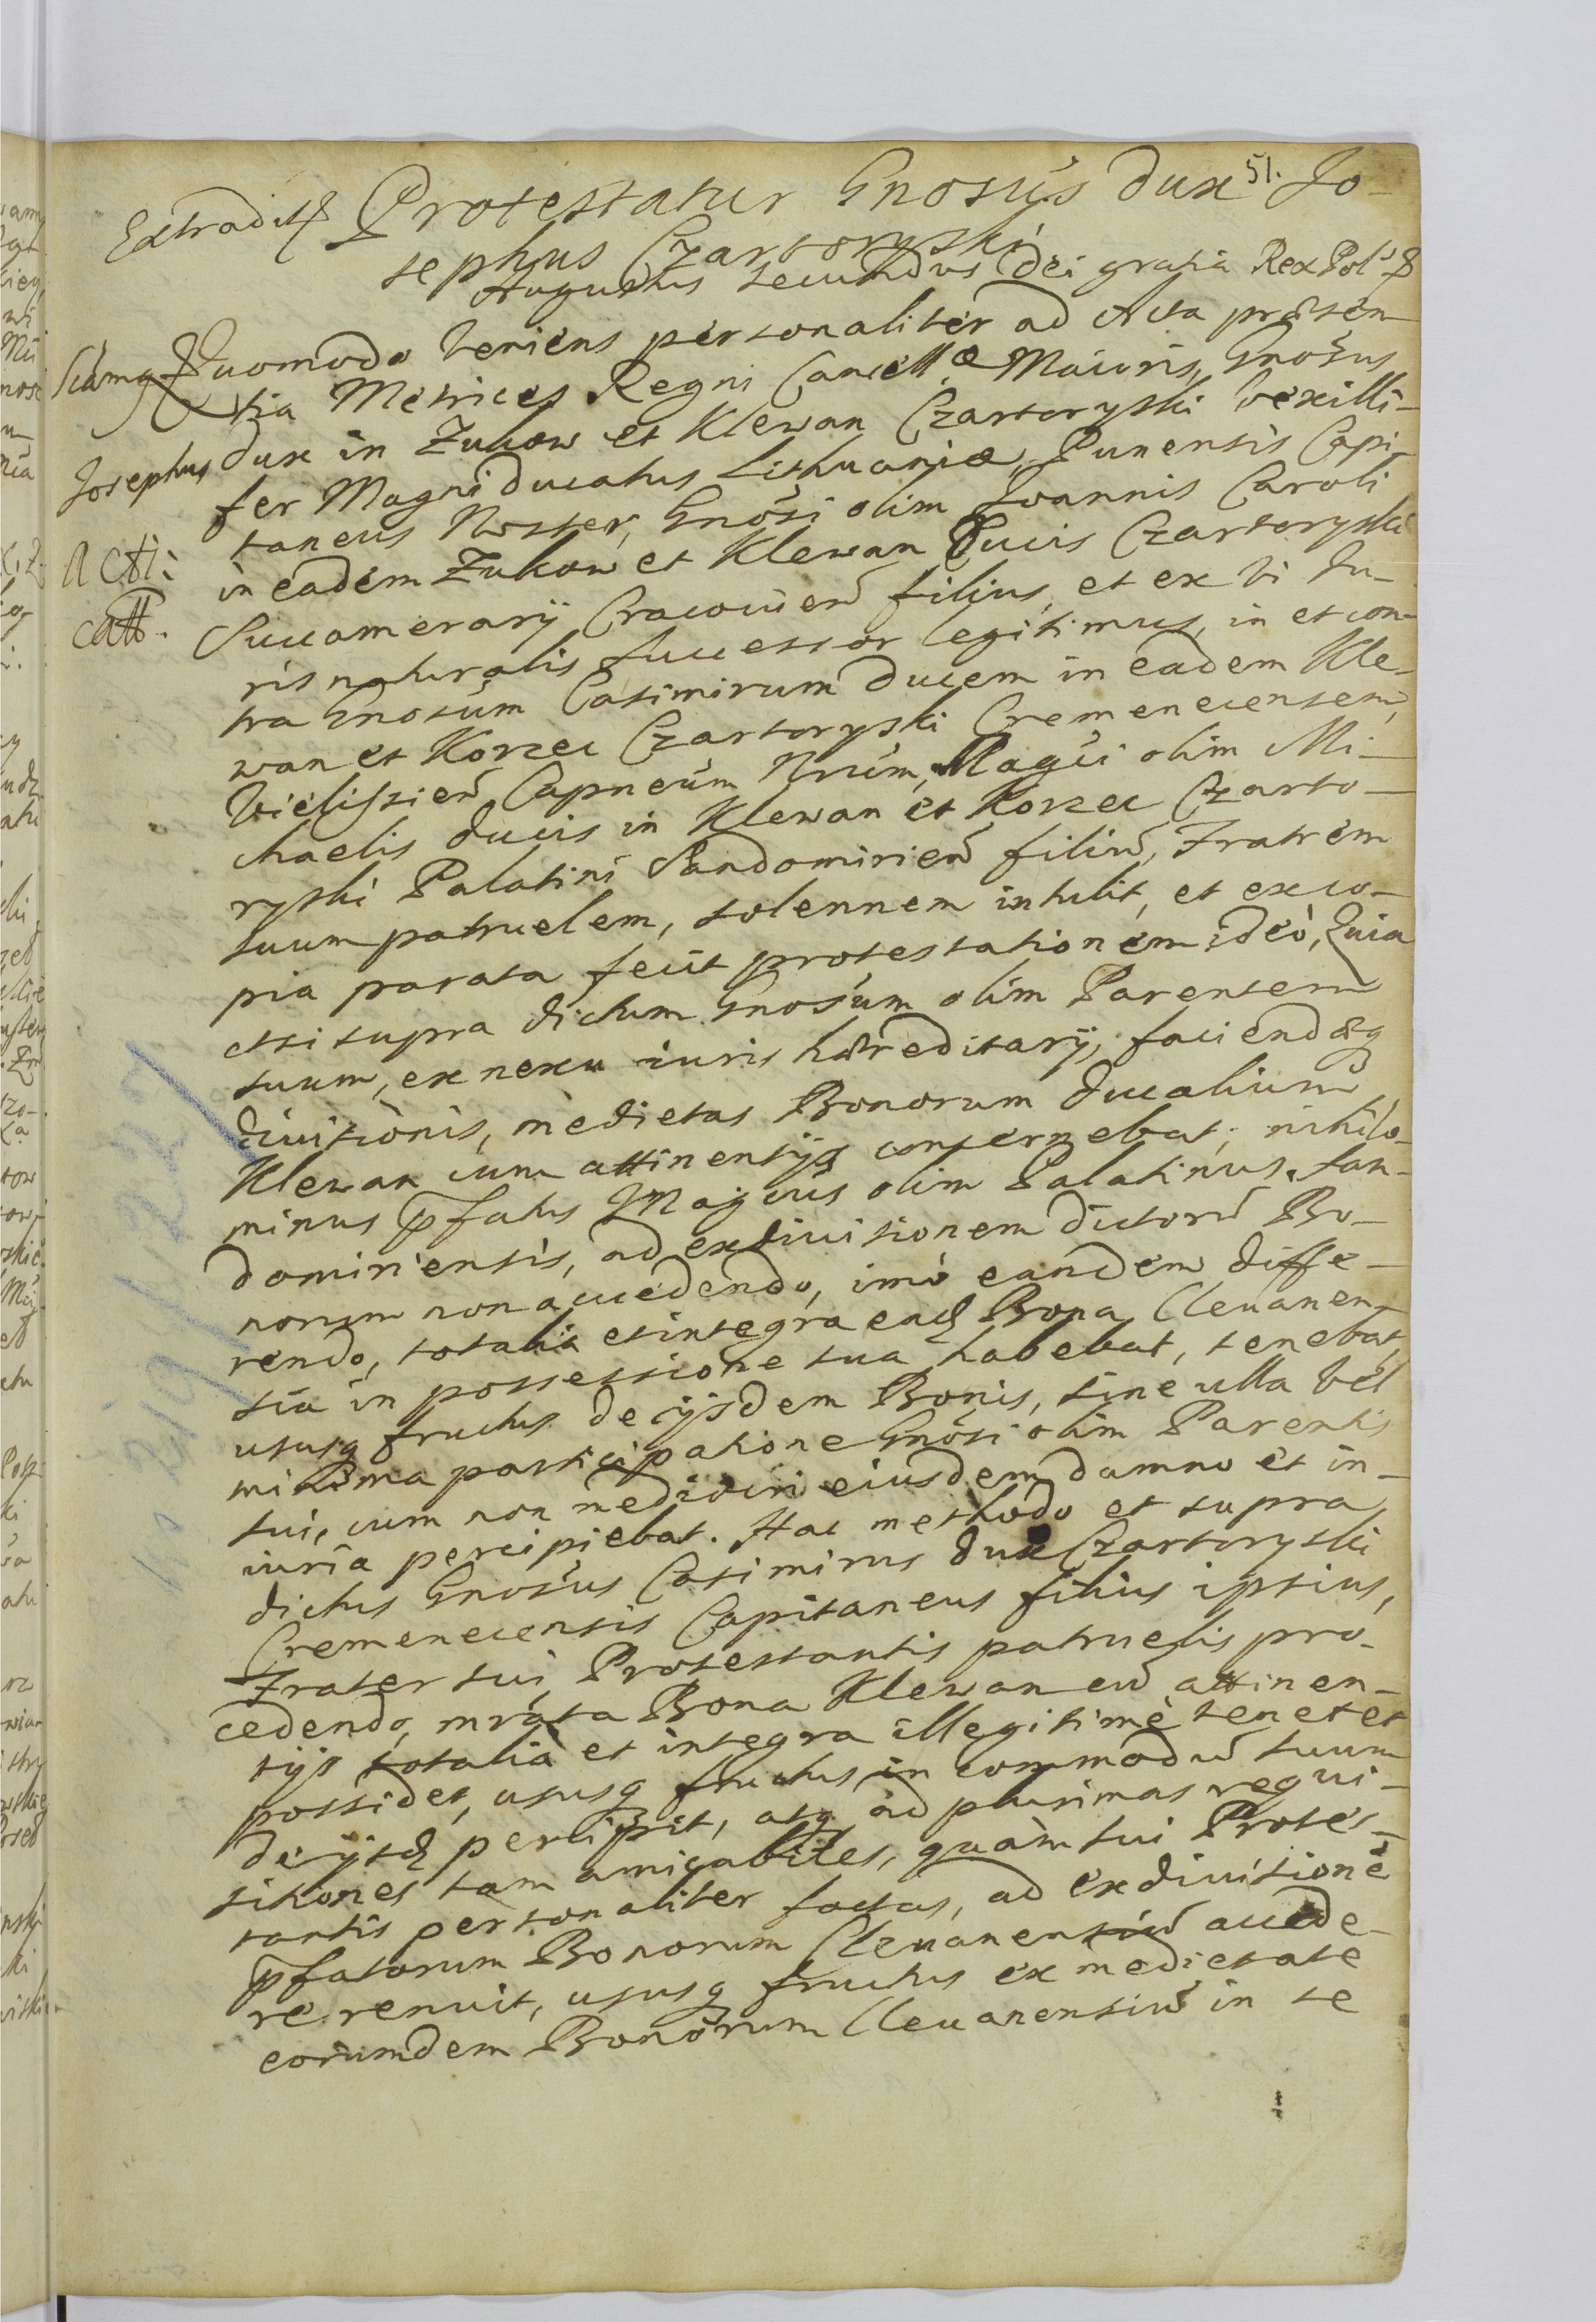 51.
Extradit
Protestatur Gnosus dux Jo-
sephus Czartoryski
Augustus secundus Dei gratia Rex Pol.
Quomodo veniens personaliter ad Acta præsen-
tia Metrices Regni Cancellæ Maioris, Gnosus
Josephus dux in Zukow et Klewan Czartoryski vexilli-
fer Magni ducatus Lithuaniæ, Punensis Capi-
taneus Noster, Gnosi olim Joannis Caroli
in eadem Zukow et Klewan Ducis Czartoryski
Succamerarij Cracovien filius, et ex vi Ju-
ris naturalis successor legitimus, in et con-
tra Gnosum Casimirum ducem in eadem Kle-
wan et Korzec Czartoryski Cremenecensem,
Vieliszien Capneum Nrum, Magci olim Mi-
chaelis ducis in Klewan et Korzec Czarto-
ryski Palatini Sandomirien filiu, Fratrem
suum patruelem, solennem intulit, et ex co-
pia parata fecit protestationem ideò, Quia
etsi supra dictum Gnosum olim Parentem
suum, ex nexu iuris hæreditarij, faciendæq
divisionis, medietas Bonorum ducalium
Klewan cum attinentijs concernebat; nihilo-
minus pfatus Magcus olim Palatinus San-
domiriensis, ad exdivisionem dictoru Bo-
norum non accedendo, imò eandem diffe-
rendo, totalia et integra ead Bona Clevanen-
sia in possessione sua habebat, tenebat,
ususq fructus de ijsdem Bonis, sine ulla vel
minima participatione Gnosi olim Parentis
sui, cum non mediocri eiusdem damno et in-
iuria percipiebat. Hac methodo et supra
dictus Gnosus Casimirus dux Czartoryski
Cremenecensis Capitaneus filius ipsius,
Frater sui Protestantis patruelis pro-
cedendo, mrata Bona Klewan cu attinen-
tijs totalia et integra illegitimè tenet et
possidet, ususq fructus in commodu suum
de ijsd percipit, atq ad plurimas requi-
sitiones tam amicabiles, quàm sui Protes-
tantis personaliter factas, ad exdivisione
pfatorum Bonorum Clevanensiu accede-
re renuit, ususq fructus ex medietate
eorumdem Bonorum Clevanensiu in se